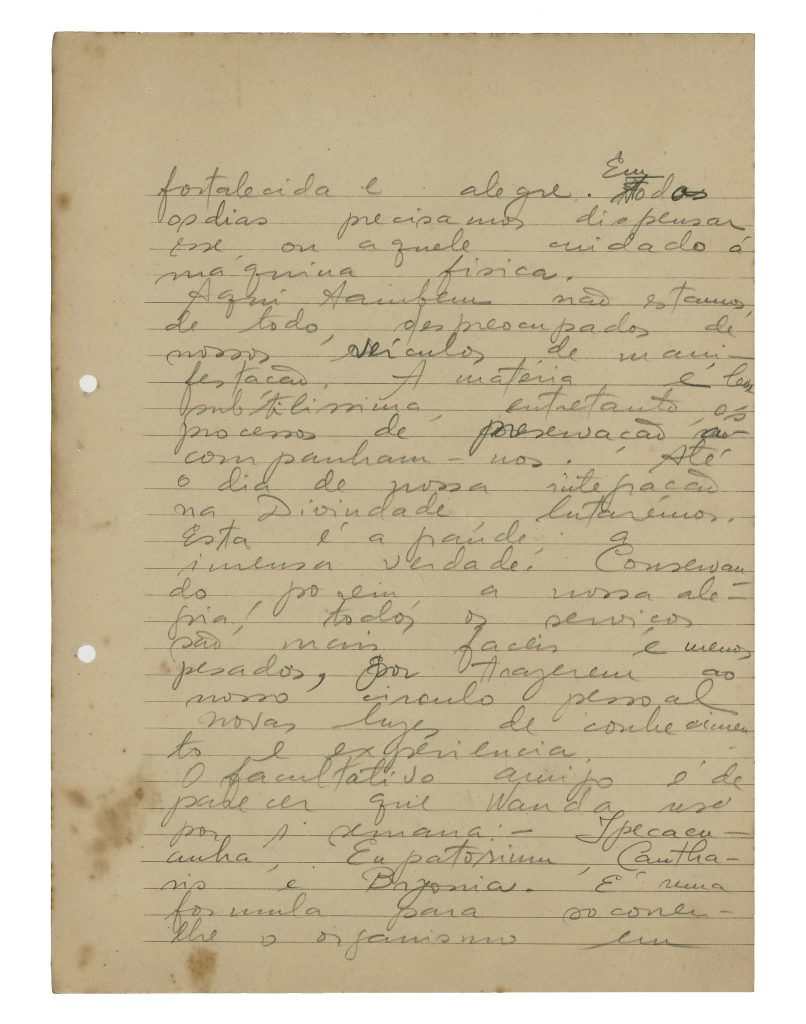 fortalecida e alegre. Em todos
os dias precisamos dispensar
esse ou aquele cuidado á
máquina fisica.
Aqui tambem não estamos,
de todo, despreocupados de
nossos veículos de mani-
festação. A matéria é leve
subtilissima, entretanto, os
processos de preservação ac-
companham-nos. Até
o dia de nossa integração
na Divindade lutarémos.
Esta é a grande a
imensa verdade. Conservan-
do porem a nossa ale-
gria, todos os serviços
são mais faceis e menos
pesados, por trazerem ao
nosso circulo pessoal
novas luzes de conhecimen-
to e experiencia.
O facultativo amigo é de
parecer que Wanda use
por 1 semana:- Ipecacu-
anha, Eupatorium, Cantha-
ris e Bryonia. É uma
formula para socorrer-
lhe o organismo em